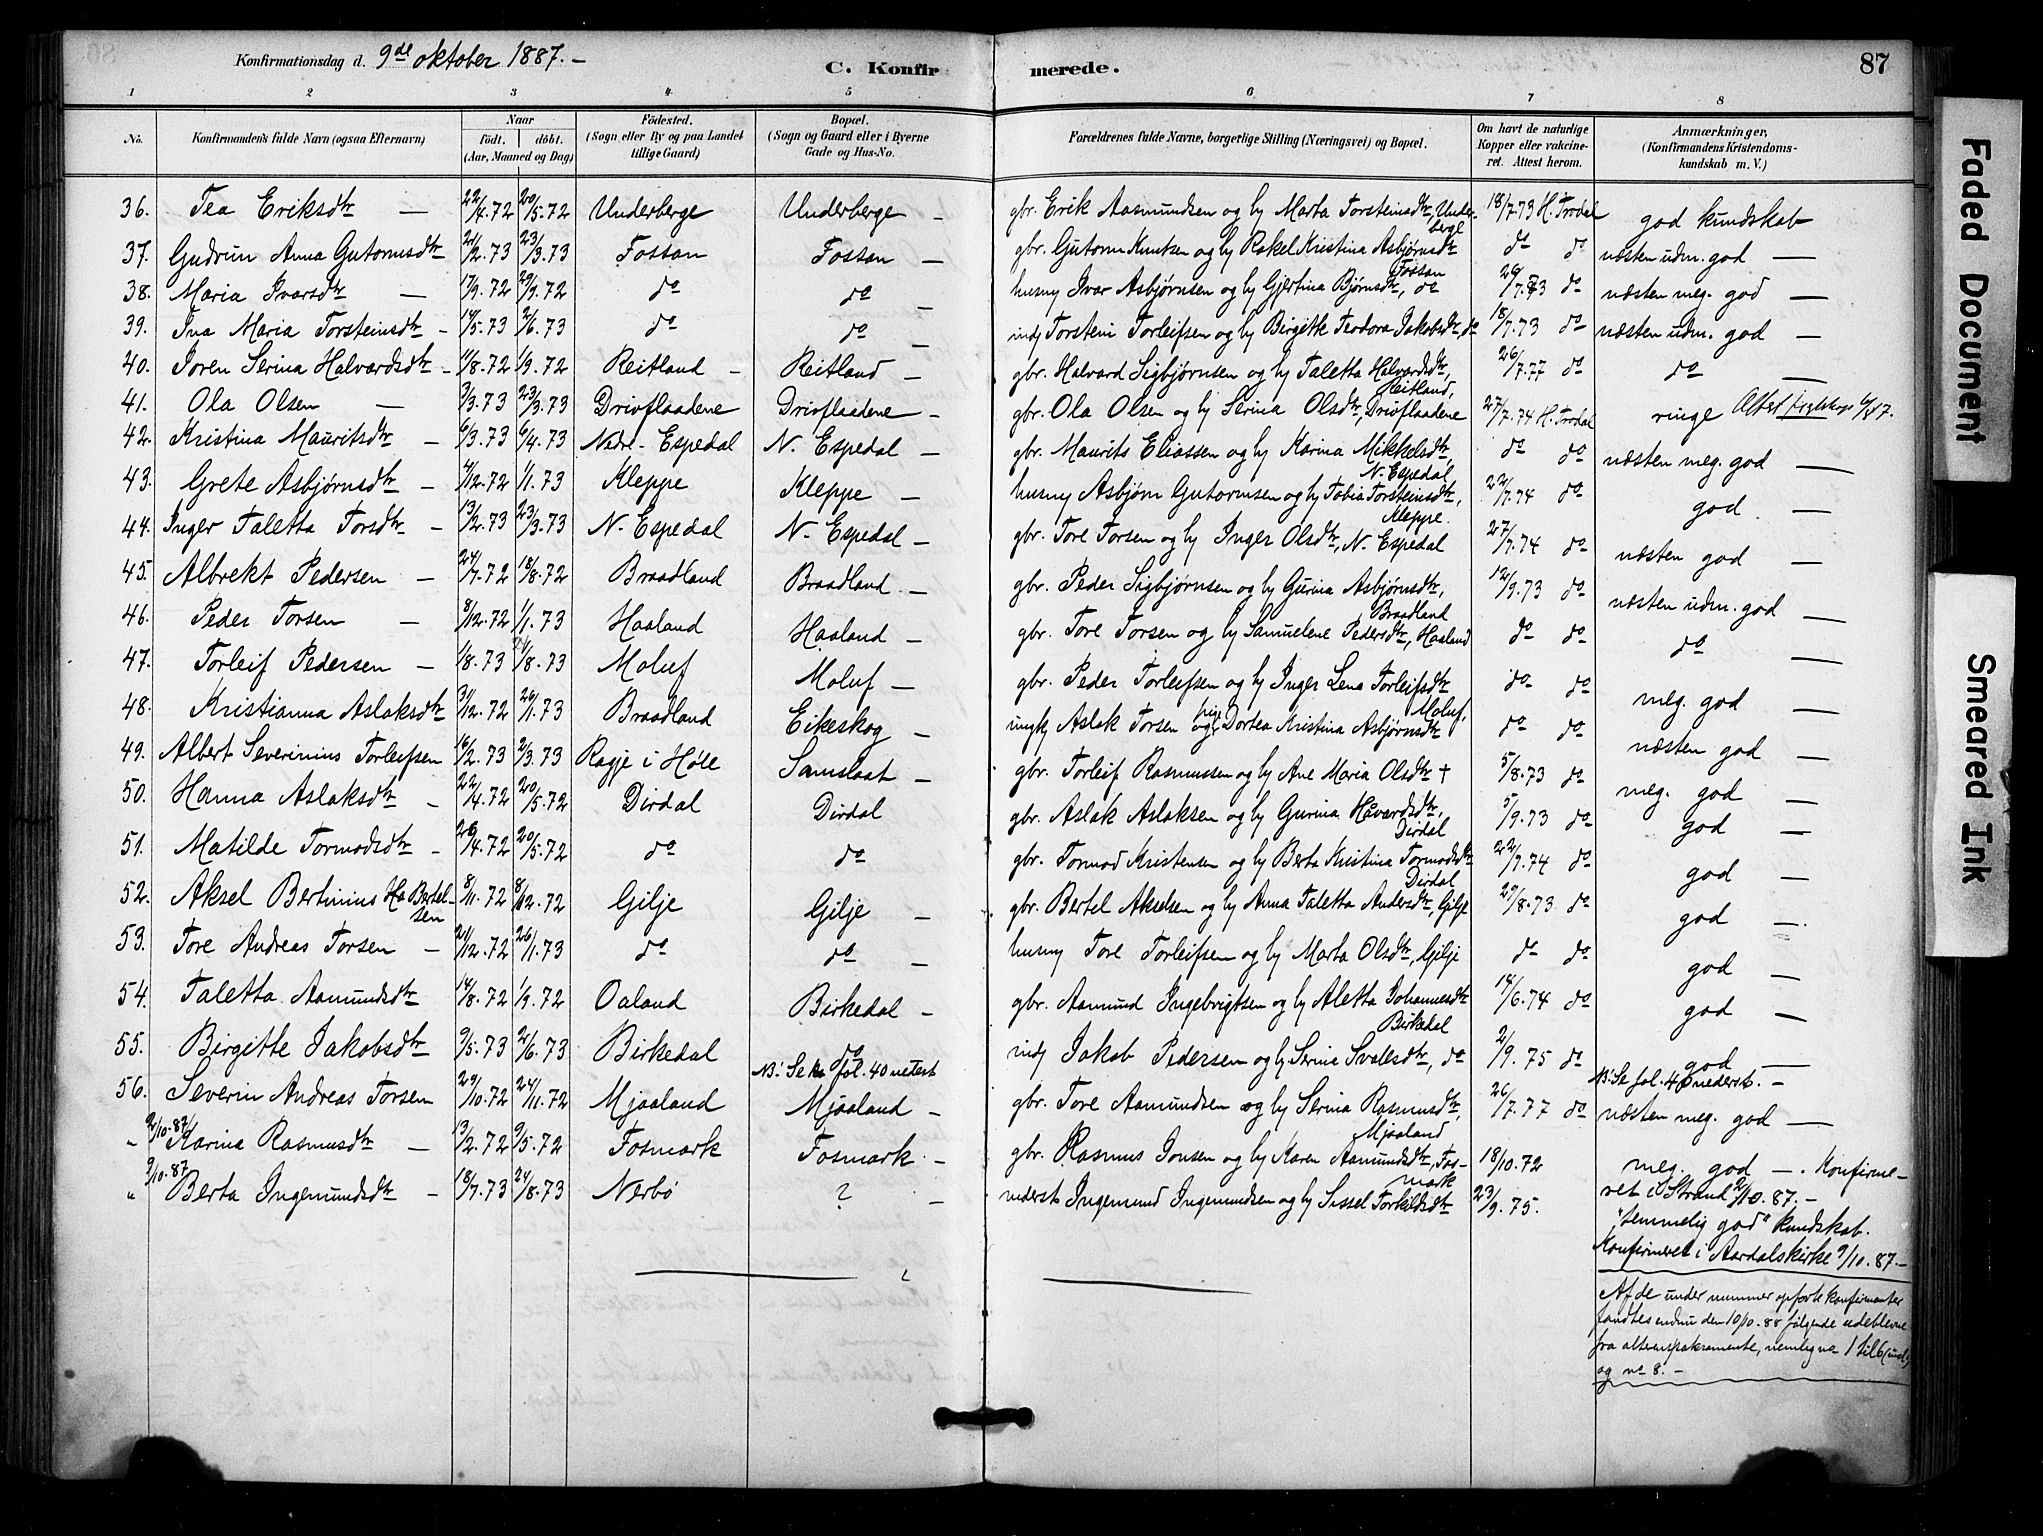 Konfirmationsdag d. 9de oktober 1887.-
C. Konfirmerede.
87
1 2 3 4 5 6 7 8
No. Konfirmandens fulde Navn (ogsaa Efternavn) Naar födt. döbt. (Aar, Maaned og Dag) Födested. (Sogn eller By og paa Landet tillige Gaard) Bopæl. (Sogn og Gaard eller i Byerne Gade og Hus-No. Forældrenes fulde Navne, borgerlige Stilling (Næringsvei) og Bopæl. Om havt de naturlige Kopper eller vakcineret. Attest herom. Anmærkninger, (Konfirmandens Kristendomskundskab m. V.)
36. Tea Eriksdtr — 22/4.72 20/5.72 Underberge Underberge — gbr. Erik Aasmundsen og hj Marta Torsteinsdtr, Underberge 18/7.73 H. Trodal god kundskab
37. Gudrun Anna Gutormsdtr 21/2.73 23/3.73 Fossan Fossan — gbr. Gutorm Knutsen og hj Rakel Kristina Asbjørnsdtr Fossan do do næsten udm. god —
38. Maria Ivarsdtr — 17/9.72 29/9.72 do do husm Ivar Asbjørnsen og hj Gjertina Bjørnsdtr, do 29/7.73 do næsten meg. god —
39. Ina Maria Torsteinsdtr - 14/5.73 2/6.73 do do — indj Torstein Torleifsen og hj Birgitte Teodora Jakobsdtr, do 18/7.73 do næsten udm. god —
40. Joren Serina Halvardsdtr - 11/8.72 1/9.72 Reitland — Reitland — gbr. Halvard Sigbjørnsen og hj Taletta Halvardsdtr, Reitland, 26/7.77 do do —
41. Ola Olsen — 3/3.73 23/3.73 Drivflaadene Drivflaadene — gbr. Ola Olsen og hj Serina Olsdtr, Drivflaadene 27/7.74 H. Trodal ringe
42. Kristina Mauritsdtr — 6/3.73 6/4.73 Nedre-Espedal N. Espedal — gbr. Maurits Eliassen og hj Karina Mikkelsdtr, N. Espedal do do næsten meg. god —
43. Grete Asbjørnsdtr — 4/12.72 1/1.73 Kleppe Kleppe — husm Asbjørn Gutormsen og hj Tobia Torsteinsdtr, Kleppe. 22/7.74 do god —
44. Inger Taletta Torsdtr — 13/2.73 23/3.73 N. Espedal N. Espedal — gbr. Tore Torsen og hj Inger Olsdtr, N. Espedal 27/7.74 do næsten god —
45. Albrekt Pedersen — 24/7.72 18/8.72 Braadland Braadland. — gbr. Peder Sigbjørnsen og hj Gurina Asbjørnsdtr, Braadland 12/9.73 do næsten udm. god —
46. Peder Torsen — 8/12.72 1/1.73 Haaland Haaland — gbr. Tore Torsen og hj Samuelene Pedersdtr, Haaland do do do —
47. Torleif Pedersen — 1/8.73 /8.73 Moluf Moluf — gbr. Peder Torleifsen og hj Inger Lena Torleifsdtr Moluf, do do meg. god —
48. Kristianna Aslaksdtr 31/12.72 26/1.73 Braadland Eikeskog — ungk Aslak Torsen og pige Dortea Kristina Asbjørnsdtr do do næsten god —
49. Albert Severinius Torleifsen 16/2.73 2/3.73 Ragje i Høle Samslaat — gbr. Torleif Rasmussen og hj Ane Maria Olsdtr † 5/8.73 do meg. god —
50. Hanna Aslaksdtr — 22/4.72 20/5.72 Dirdal Dirdal gbr. Aslak Aslaksen og hj Gurina Havardsdtr, Dirdal 5/9.73 do god —
51. Matilde Tormodsdtr — 26/4.72 20/5.72 do do gbr. Tormod Kristensen og hj Berta Kristina Tormodsdtr Dirdal 22/7.74 do god —
52. Aksel Bertinius Bertelsen 8/11.72 8/12.72 Gilje Gilje — gbr. Bertel Akselsen og hj Anna Taletta Andersdtr, Gilje 29/8.73 do god —
53. Tore Andreas Torsen — 21/12.72 26/1.73 do do — husm Tore Torleifsen og hj Marta Olsdtr, Gilje do do god —
54. Taletta Aamundsdtr 14/8.72 1/9.72 Oaland Birkedal — gbr. Aamund Ingebrigtsen og hj Aletta Johannesdtr Birkedal 14/6.74 do god —
55. Birgitte Jakobsdtr 9/5.73 2/6.73 Birkedal do indj Jakob Pedersen og hj Serina Svalesdtr, do 2/9.75 do god —
NB: Se fol. 40 nederst NB: Se fol. 40 nederst. -
56. Severin Andreas Torsen 29/10.72 24/11.72 Mjaaland Mjaaland — gbr. Tore Aamundsen og hj Serina Rasmusdtr, Mjaaland 26/7.77 do næsten meg. god —
" 2/10.87 Karina Rasmusdtr — 13/2.72 9/5.72 Fosmark Fosmark — gbr. Rasmus Jonsen og hj Karen Aamundsdtr, Fosmark 18/10.72 meg. god —. Konfirmeret i Strand 2/10.87.-
" 9/10.87 Berta Ingemundsdtr — 18/7.73 24/8.73 Nerbø ? — inderst Ingemund Ingemundsen og hj Sissel Torkildsdtr 23/9.75. "temmelig god" kundskab.
Konfirmeret i Aardalskirke 9/10.87.-
Af de under nummer opførte konfirmanter
fandtes endnu den 10/10.88 følgende udeblevne
fra alterens sakramente, nemlig no 1 til 6 (incl)
og no 8. -
Faded Document
Smeared Ink